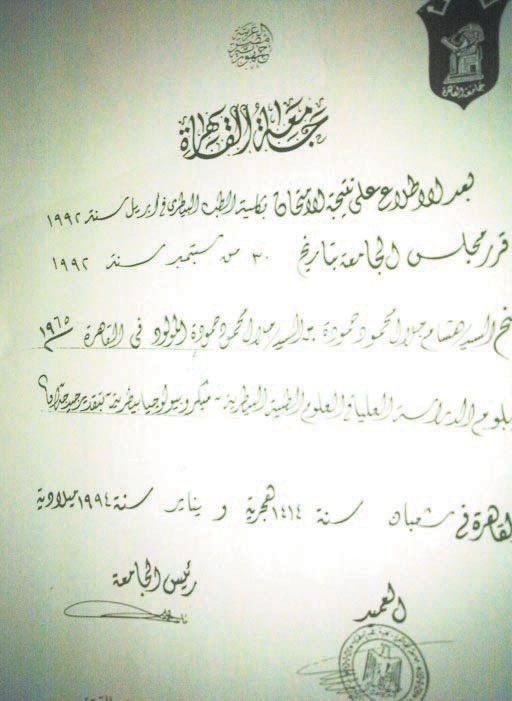 جمهورية مصر العربية
جامعة القاهرة
جامعة القاهرة
بعد الاطلاع على نتيجة الامتحان بكلية الطب البيطرى فى ابريل سنة ١٩٩٢
قرر مجلس الجامعة بتاريخ ٣٠ من سبتمبر سنة ١٩٩٢
نح السيد/هشام جلال محمود حمودة بن السيد/جلال محمود حمودة المولود فى القاهرة ١٩٦٥
بلوم الدراسة العليا فى العلوم الطبية البيطرية - ميكروبيولوجيا بيطرية بتقدير جيد جدا
لقاهرة فى شعبان سنة ١٤١٤ هجرية و يناير سنة ١٩٩٤ ميلادية
رئيس الجامعة
العميد